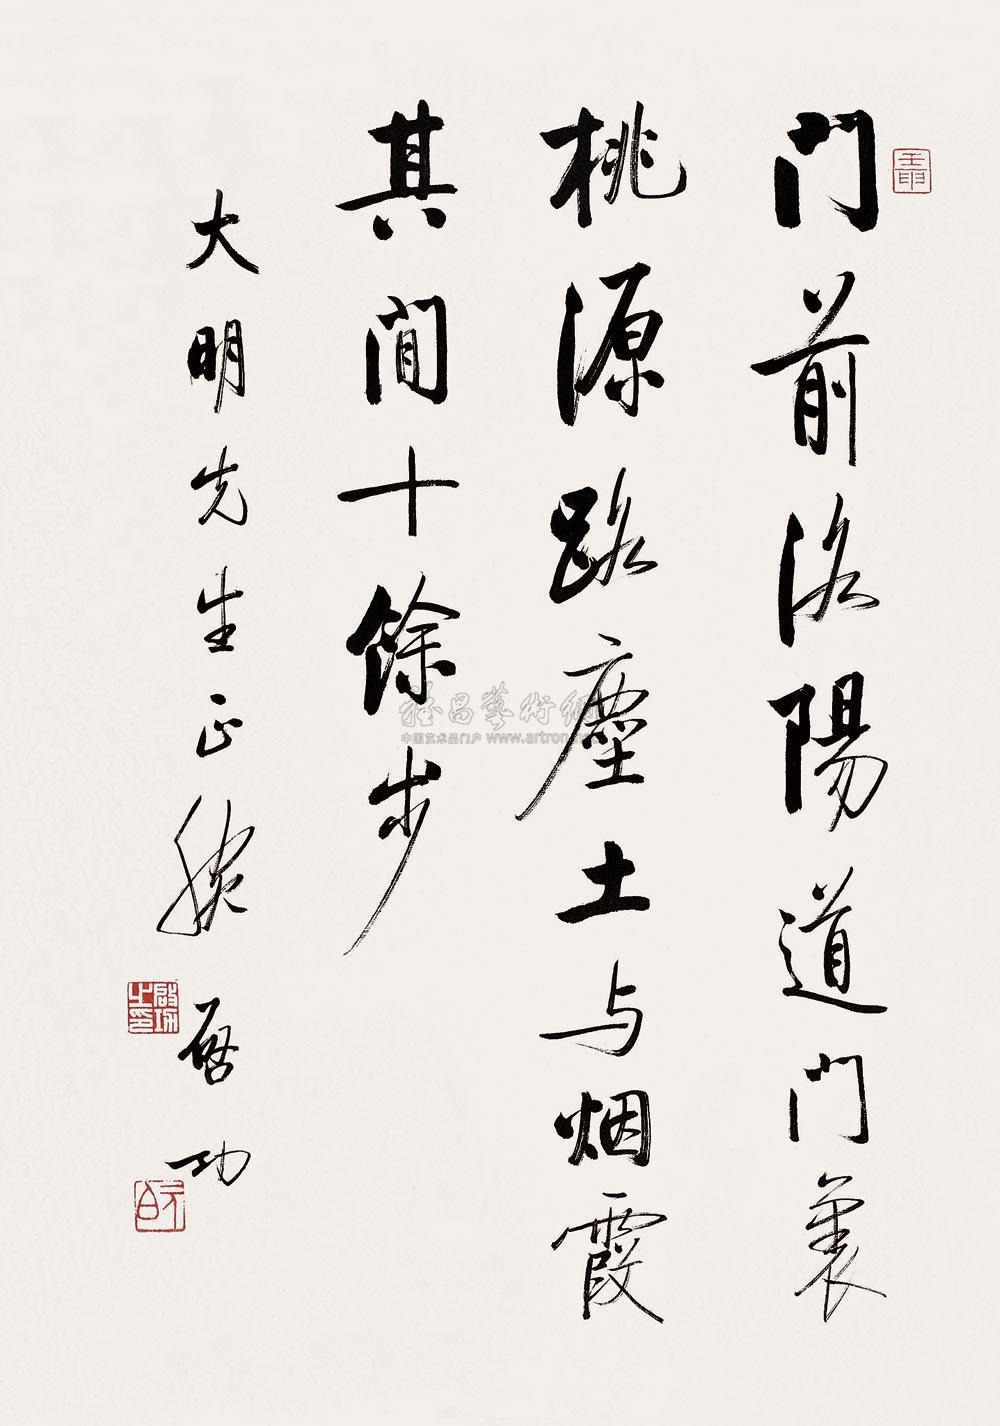 门前洛陽道门裏
桃源路塵土与烟霞
其间十餘步
大明先生正腕
启功
啟功之印
雅昌藝術網
中国艺术品门户 www.artron.net